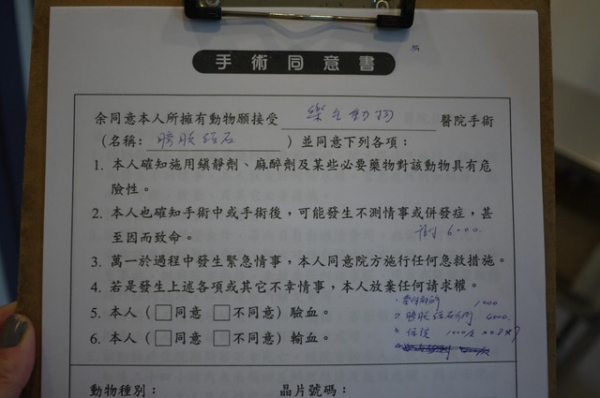 手術同意書
余同意本人所擁有動物願接受 樂生動物 醫院手術
(名稱：膀胱結石)並同意下列各項：
1. 本人確知施用鎮靜劑、麻醉劑及某些必要藥物對該動物具有危
險性。
2. 本人也確知手術中或手術後，可能發生不測情事或併發症，甚
至因而致命。
6000.
3. 萬一於過程中發生緊急情事，本人同意院方施行任何急救措施。
4. 若是發生上述各項或其它不幸情事，本人放棄任何請求權。
1000
5. 本人（□同意 □不同意）驗血。
膀胱結石 6000.
6. 本人（□同意 □不同意）輸血。
住院 1000/
動物種別： 晶片號碼：